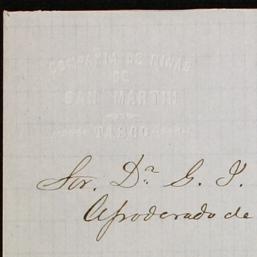 COMPAÑIA DE MINAS
DE
SAN MARTIN
TASCO
Sor. Dn G. I.
Apoderado de